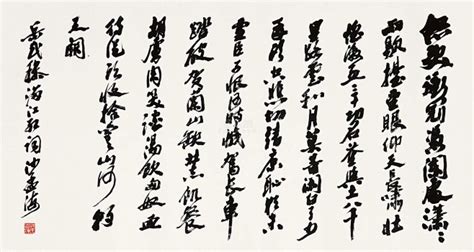 怒髮衝冠憑闌處瀟瀟
雨歇擡望眼仰天長嘯壯
懷激烈三十功名塵與土八千
里路雲和月莫等閒白了少
年頭空悲切靖康恥猶未
雪臣子恨何時滅駕長車
踏破賀蘭山缺壯志飢餐
胡虜肉笑談渴飲匈奴血
待從頭收拾舊山河朝
天闕
岳武穆滿江紅詞 沙孟海